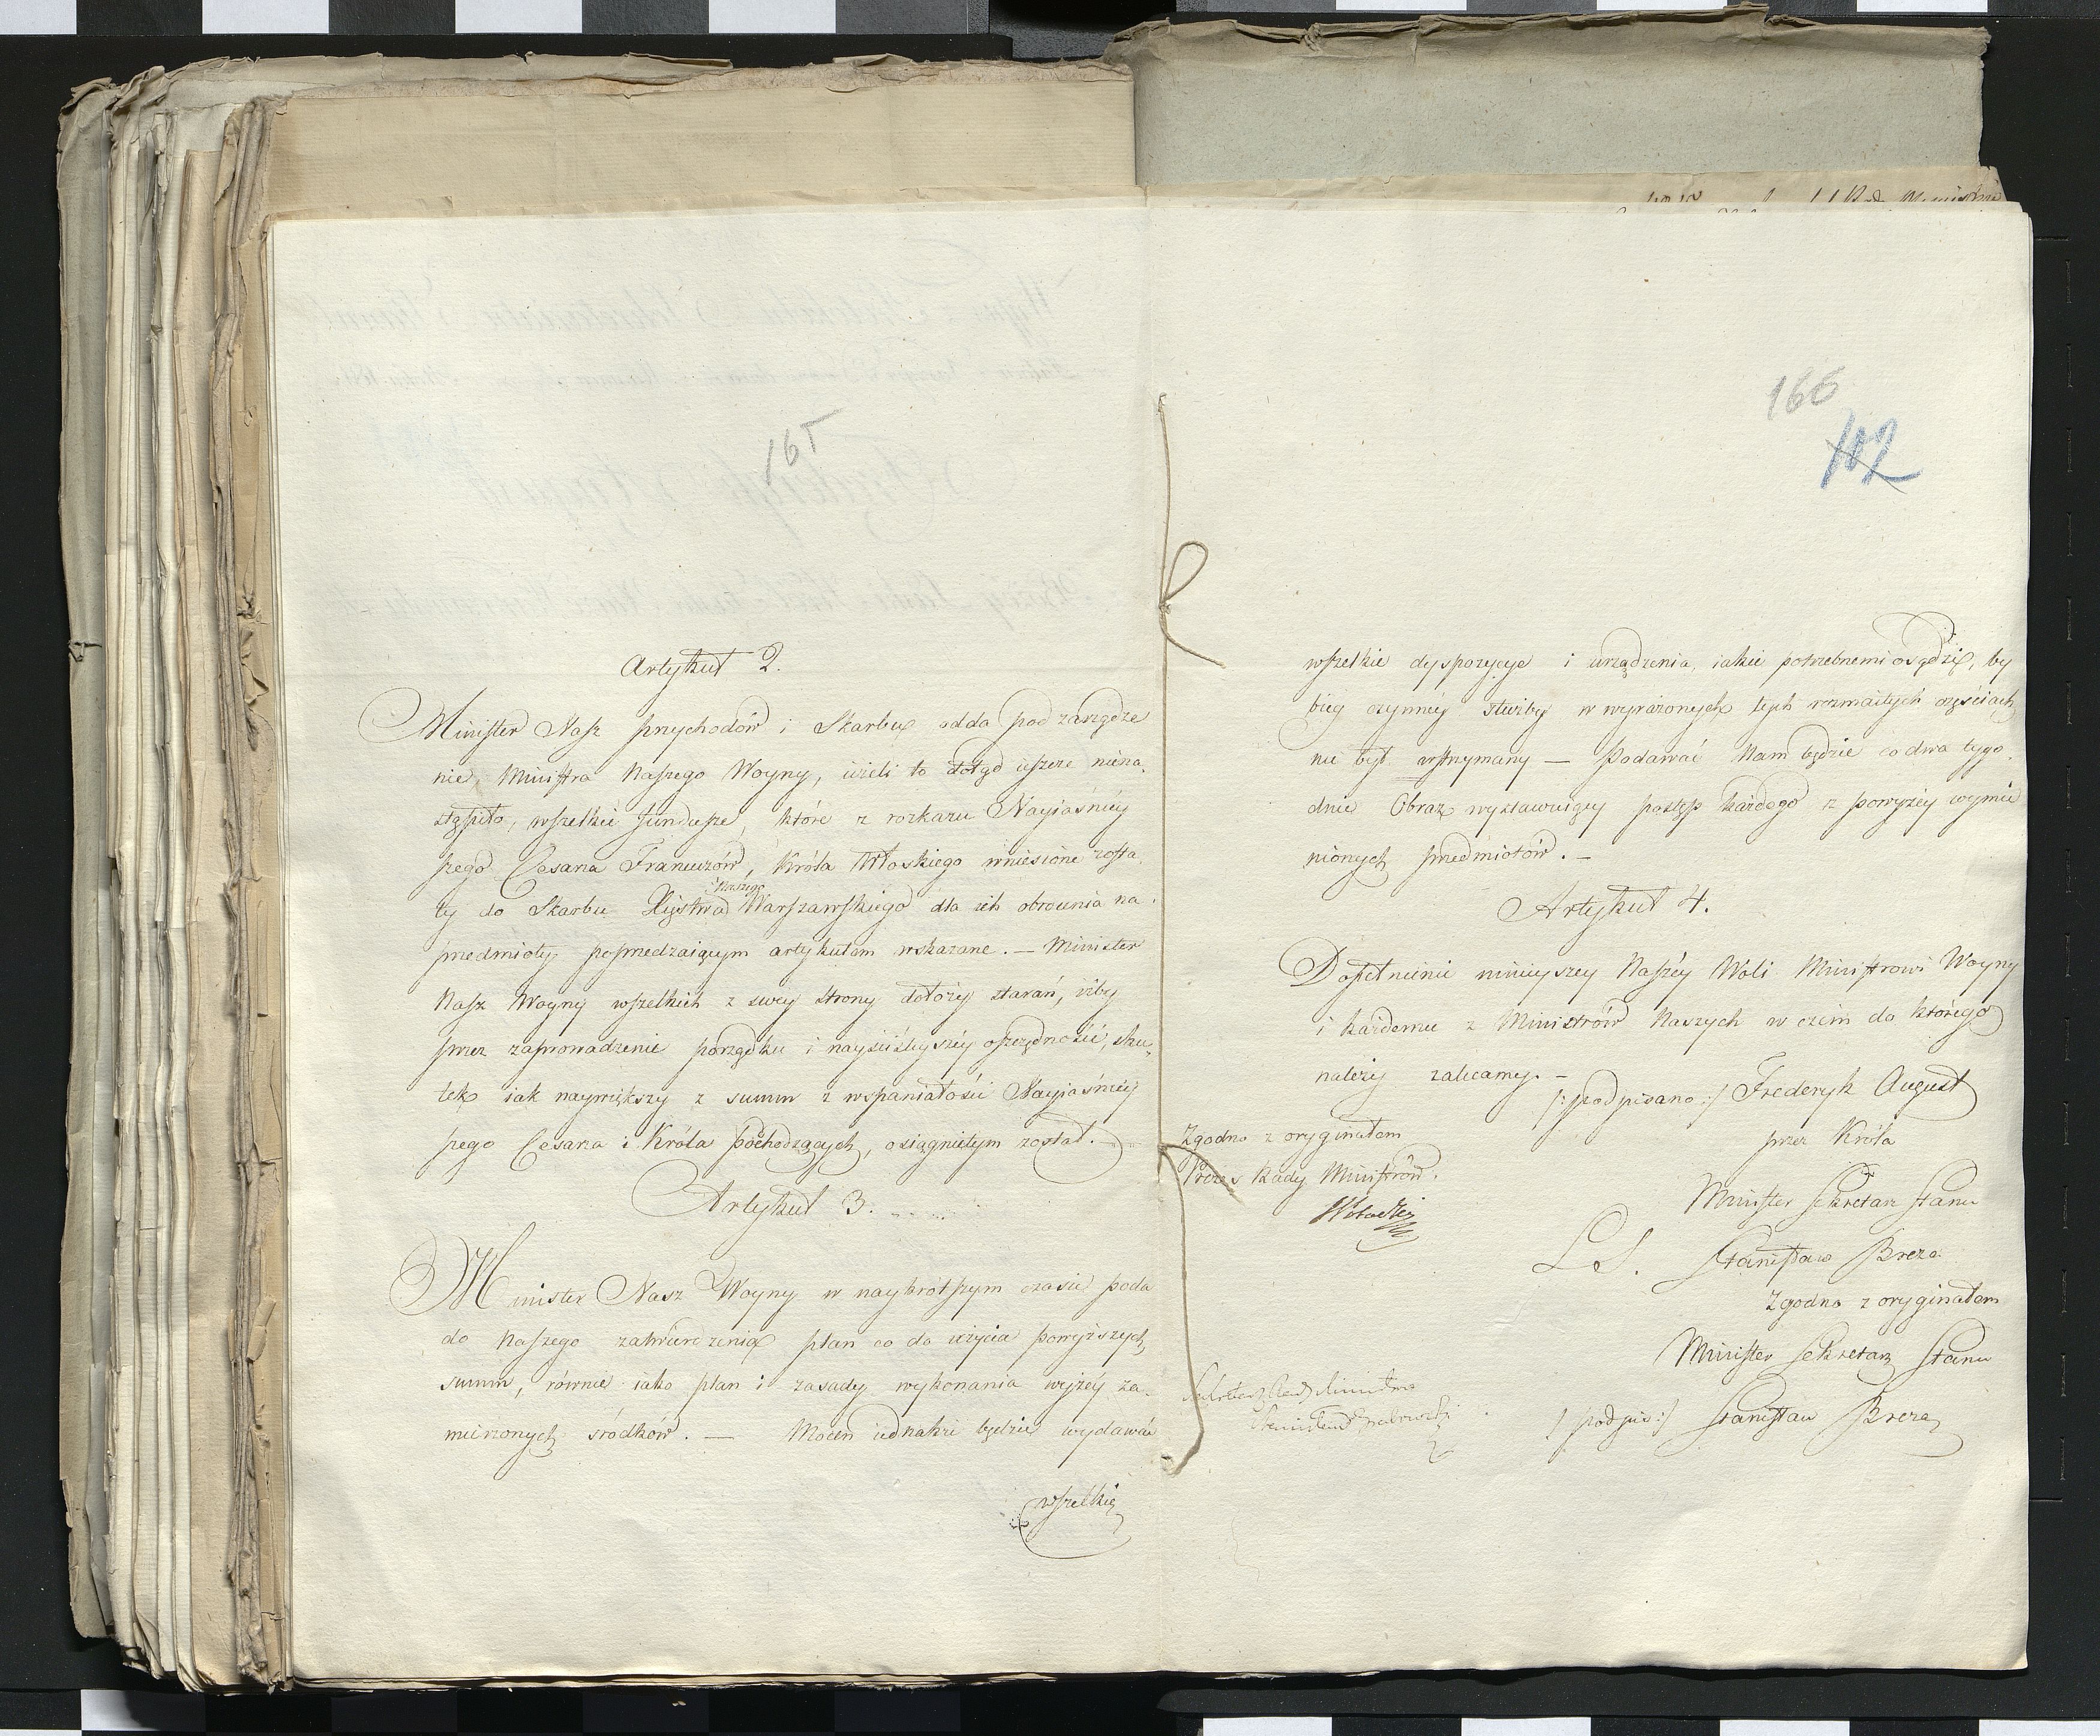 165
Artykuł 2.
Minister Nasz przychodów i Skarbu odda pod zarządze
nie Ministra Naszego Woyny, ieżeli to dotąd ieszcze niena,
stąpiło, wszelkie fundusze, które z rozkazu Nayiaśniey
szego Cesarza Francuzów, Króla Włoskiego wniesione zosta,
Naszego
ły do Skarbu Xięstwa Warszawskiego dla ich obrócenia na
przedmioty poprzedzaiącym artykułem wskazane. — Minister
Nasz Woyny wszelkich z swey strony dołoży starań, iżby
przez zaprowadzenie porządku i nayściśleyszéy oszczędności, sku,
tek iak naywiększy z summ z wspaniałości Nayiaśniey
szego Cesarza i Króla pochodzących, osiągniętym został.
Artykuł 3.
Minister Nasz Woyny w naykrótszym czasie poda
do Naszego zatwierdzenia plan co do użycia powyższych
summ, równie iako plan i zasady wykonania wyżéy za,
mierzonych srodków. — Mocen iednakże będzie wydawać
wszelkie
166
102
wszelkie dyspozycye i urządzenia, iakie potrzebnemi osądzi, by
bieg czynnéy służby w wyrażonych tych rozmaitych częściach
nie był wstrzymany — Podawać Nam będzie co dwa tygo,
dnie Obraz wystawuiący postęp każdego z powyżéy wymie
nionych przedmiotów. —
Artykuł 4.
Dopełnienie ninieyszey Naszéy Woli Ministrowi Woyny
i każdemu z Ministrów Naszych w czém do którego
należy zalecamy. —
/: podpisano :/ Fryderyk August
Zgodno z oryginałem
przez Króla
Prezes Rady Ministrów.
Minister Sekretarz Stanu
L S. Stanisław Breza
Zgodno z oryginałem
Minister Sekretarz Stanu
Sekretarz Rady Ministrów
Stanisław Grabowski
/: podpis :/ Stanisław Breza